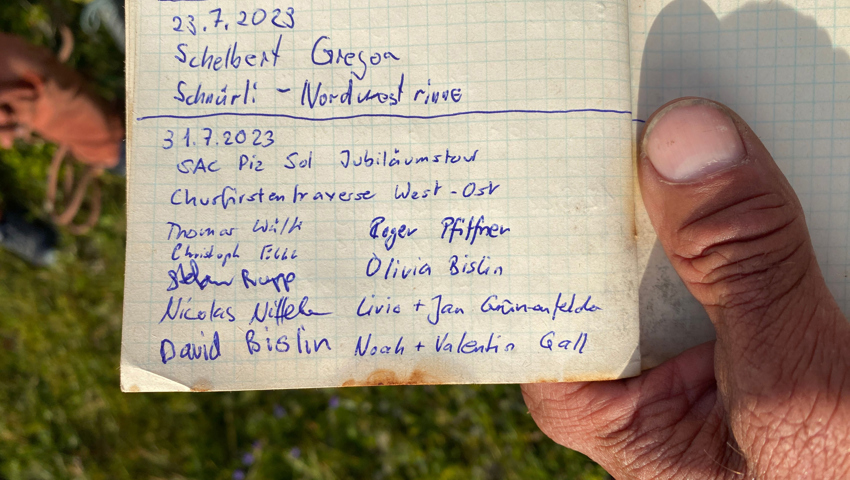 23.7.2023
Schelbert Gregor
Schnürli - Nordwestrinne
31.7.2023
SAC Piz Sol Jubiläumstour
Churfirstentraverse West-Ost
Thomas Roger Pfiffner
Christoph
Stefan Rupp Olivia Bislin
Nicolas Livia + Jan Grünenfelder
David Bislin Noah + Valentin Gall